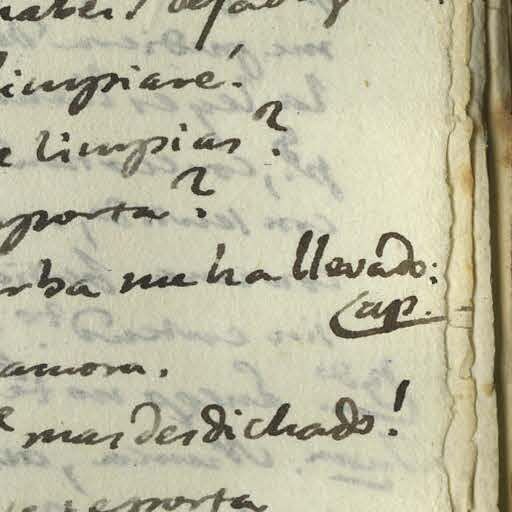 limpiaré!
limpias?
porta?
me ha llevado:
Cap.
amora.
mas desdichado!
porta